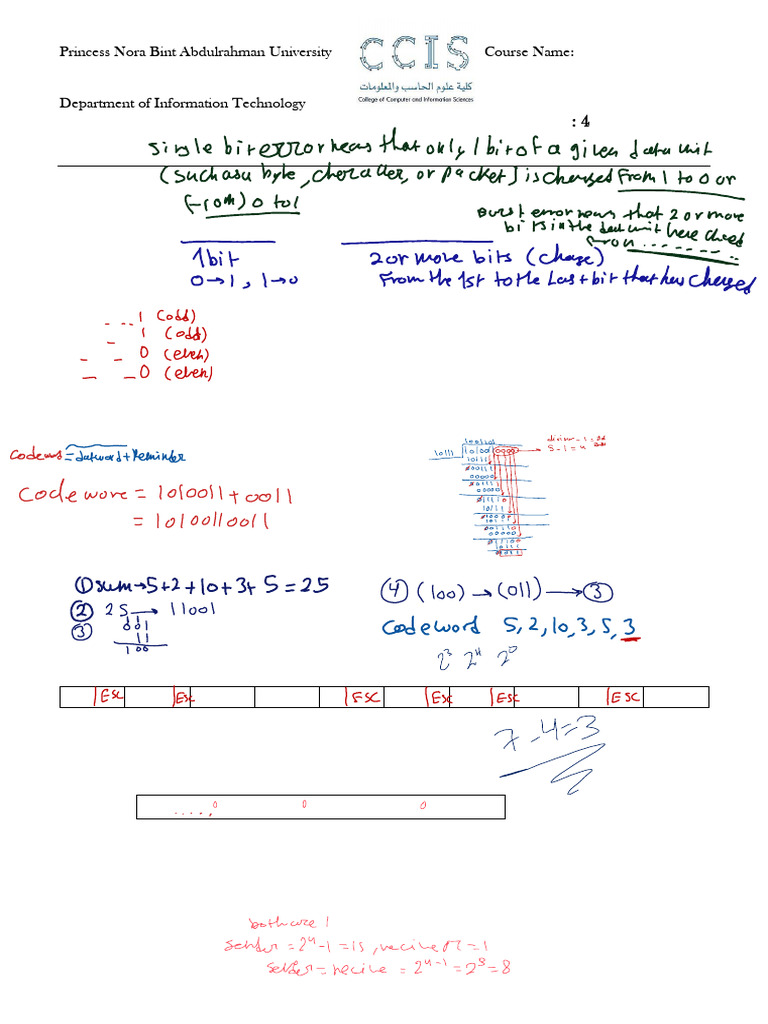 Princess Nora Bint Abdulrahman University
CCIS
Course Name:
كلية علوم الحاسب والمعلومات
College of Computer and Information Sciences
Department of Information Technology
: 4
single bit error means that only 1 bit of a given data unit
(such as a byte, character, or packet) is changed from 1 to 0 or
from 0 to 1
burst error means that 2 or more
bits in the data unit have
from .......
1 bit
0→1, 1→0
2 or more bits (change)
From the 1st to the Last bit that has changed
1 (odd)
1 (odd)
0 (even)
0 (even)
= dataword + Reminder
Codewore = 1010011 + 0011
= 10100110011
10111
5-1=4
① sum→5+2+10+3+5=25
② 25→11001
③ 001
11
100
④ (100)→(011)→③
codeword 5, 2, 10, 3, 5, 3
2³ 2⁴ 2⁰
ESC ESC ESC ESC ESC ESC
7-4=3
....,0 0 0
both are 1
sender = 2⁴-1=15, recive = 1
sender = recive = 2⁴⁻¹ = 2³ = 8